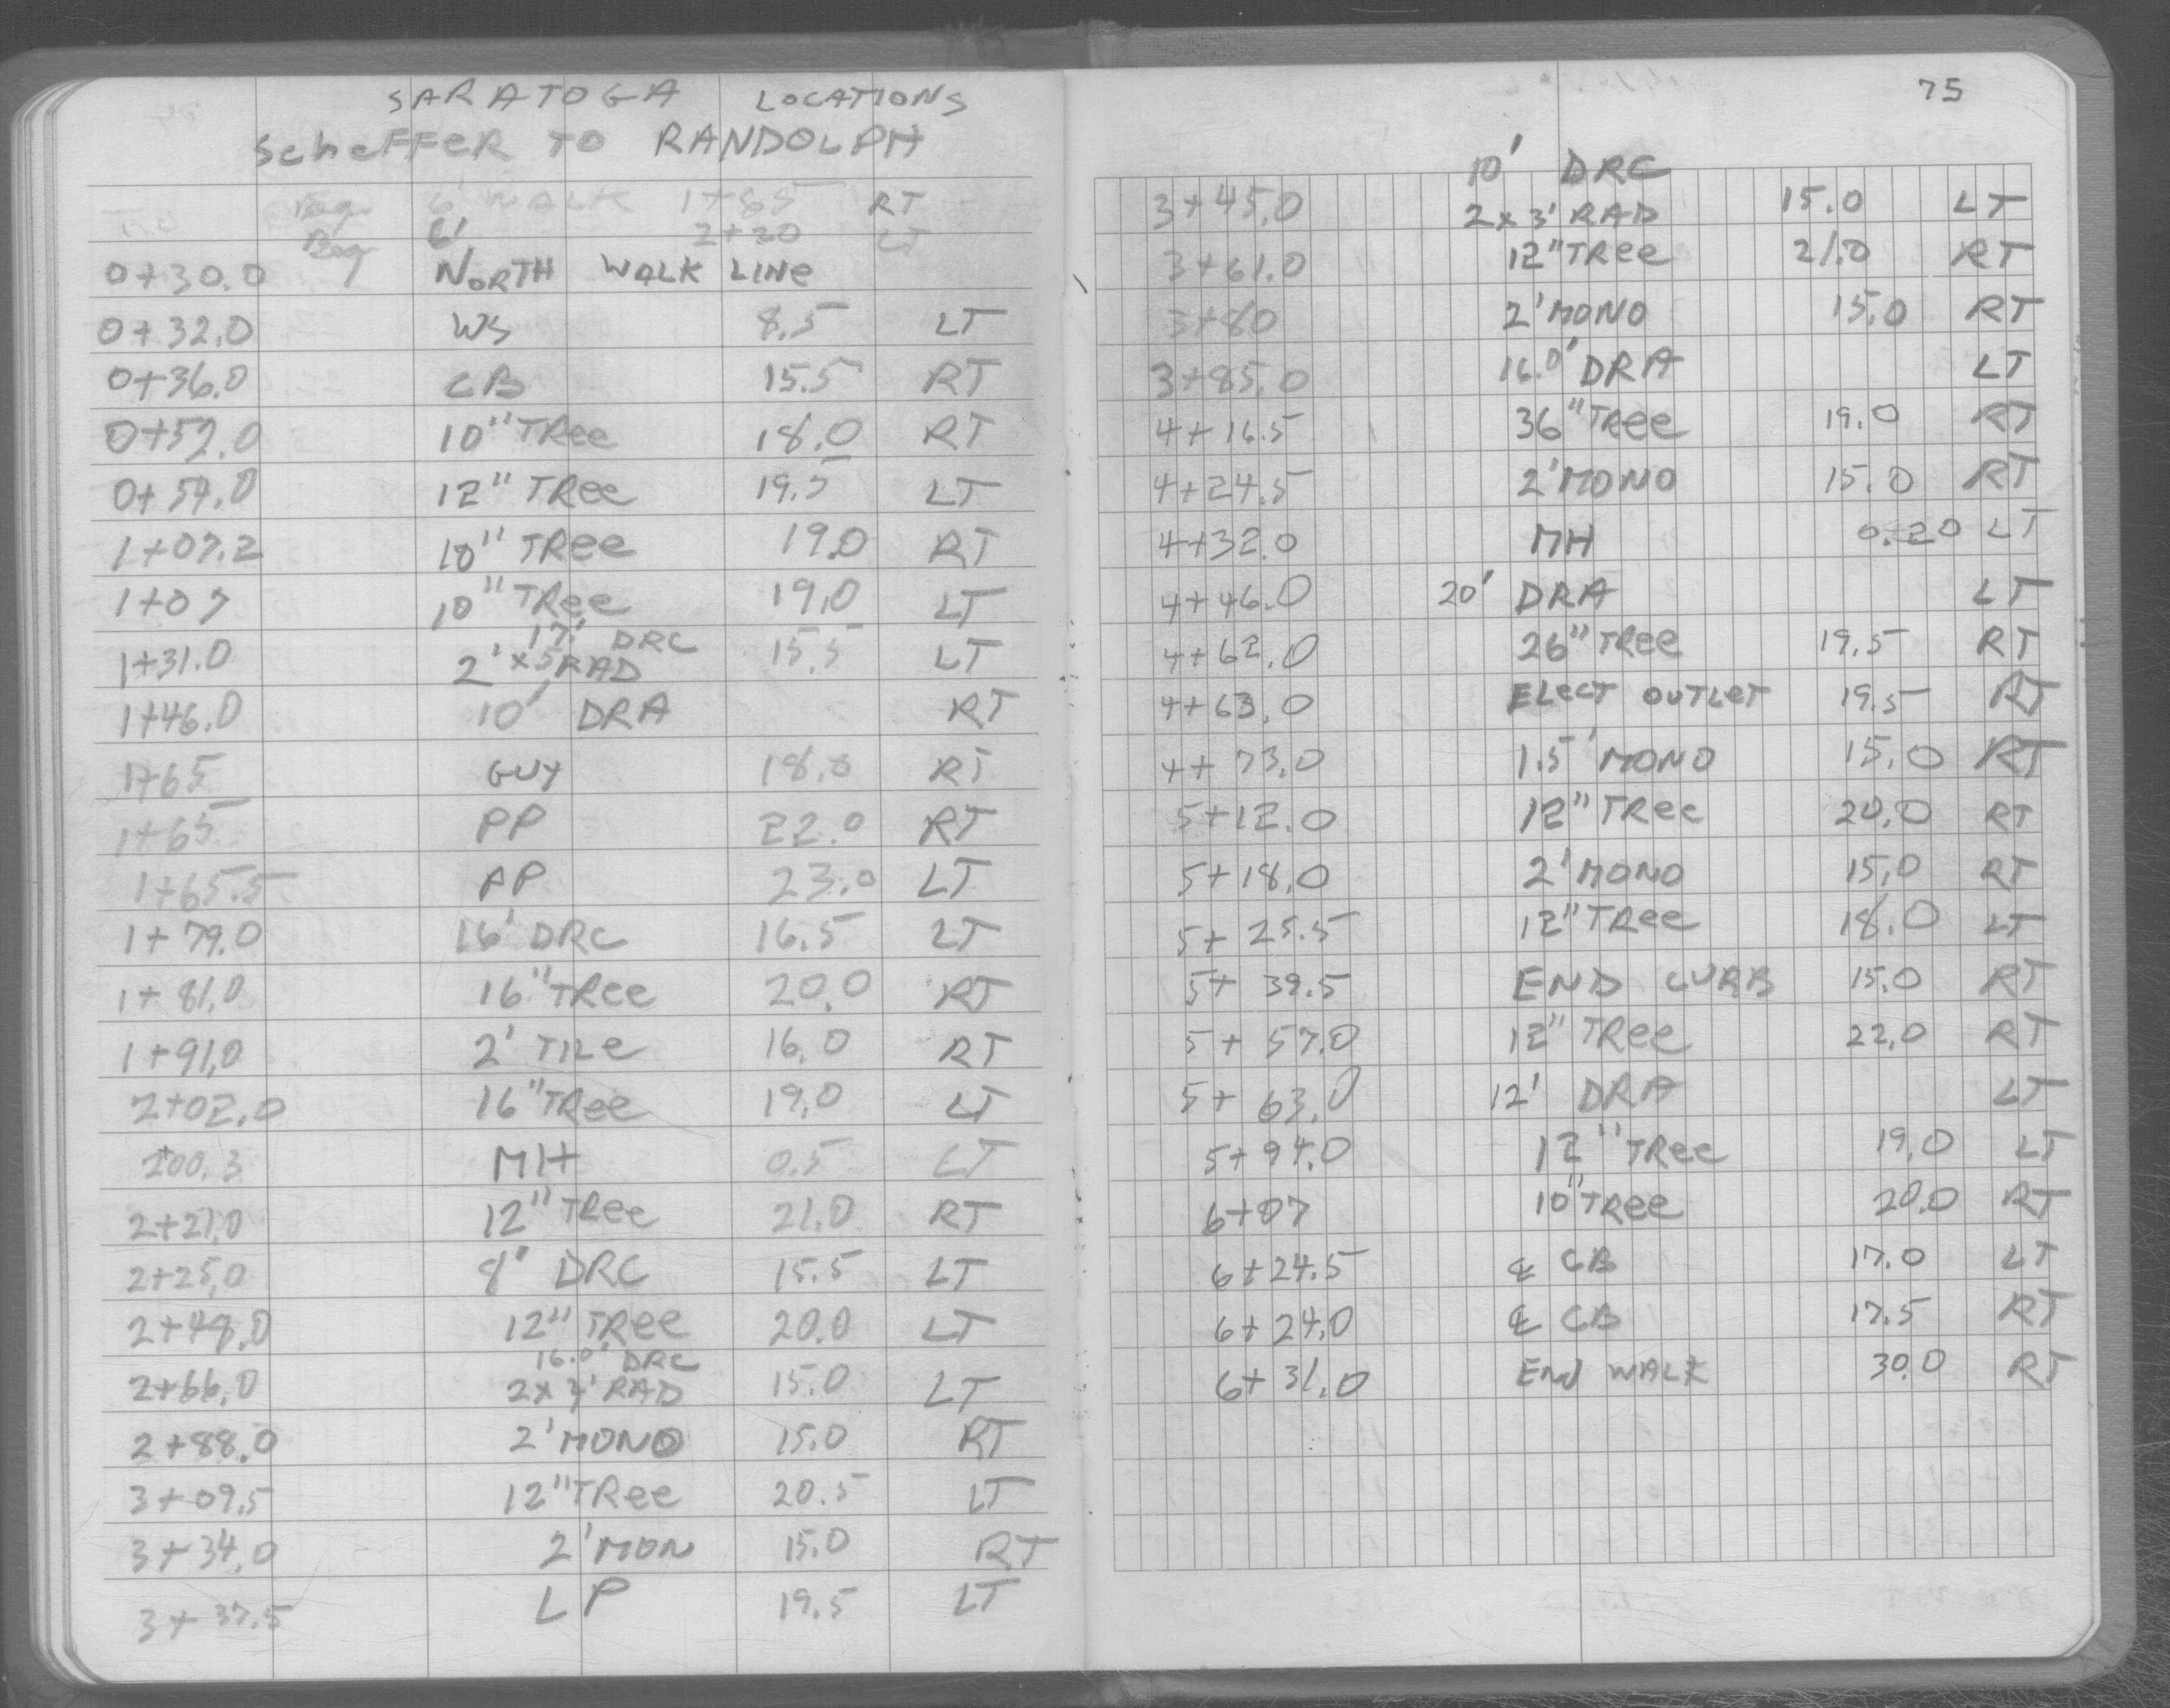 SARATOGA LOCATIONS
ScheFFeR TO RANDOLPH
Beg 6' WALK 1+65 RT
Beg 6' 2+20 LT
0+30.0 NORTH WALK LINe
0+32.0 WS 8.5 LT
0+36.0 CB 15.5 RT
0+52.0 10" TRee 18.0 RT
0+54.0 12" TRee 19.5 LT
1+07.2 10" TRee 19.0 RT
1+07 10" TRee 19.0 LT
17' DRC
1+31.0 2'x5' RAD 15.5 LT
1+46.0 10' DRA RT
1+65 GUY 18.0 RT
1+65 PP 22.0 RT
1+65.5 PP 23.0 LT
1+79.0 16' DRC 16.5 LT
1+81.0 16" TRee 20.0 RT
1+91.0 2' TRe 16.0 RT
2+02.0 16" TRee 19.0 LT
2+00.3 MH 0.5 LT
2+21.0 12" TRee 21.0 RT
2+25.0 8' DRC 15.5 LT
2+48.0 12" TRee 20.0 LT
16.0' DRC
2+66.0 2x3' RAD 15.0 LT
2+88.0 2' MONO 15.0 RT
3+09.5 12" TRee 20.5 LT
3+34.0 2' MON 15.0 RT
3+37.5 LP 19.5 LT
75
10' DRC
3+45.0 2x3' RAD 15.0 LT
3+61.0 12" TRee 21.0 RT
3+80 2' MONO 15.0 RT
3+85.0 16.0' DRA LT
4+16.5 36" TRee 19.0 RT
4+24.5 2' MONO 15.0 RT
4+32.0 MH 0.20 LT
4+46.0 20' DRA LT
4+62.0 26" TRee 19.5 RT
4+63.0 ELecT OUTLeT 19.5 RT
4+73.0 1.5' MONO 15.0 RT
5+12.0 12" TRee 20.0 RT
5+18.0 2' MONO 15.0 RT
5+25.5 12" TRee 18.0 LT
5+39.5 END CURB 15.0 RT
5+57.0 12" TRee 22.0 RT
5+63.0 12' DRA LT
5+94.0 12" TRee 19.0 LT
6+07 10" TRee 20.0 RT
6+24.5 ℄ CB 17.0 LT
6+24.0 ℄ CB 17.5 RT
6+31.0 END WALK 30.0 RT